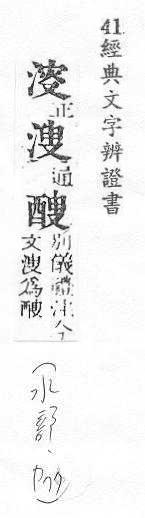 41.經典文字辨證書
浚正溲通醙別儀禮注今文溲爲醙
(水部、